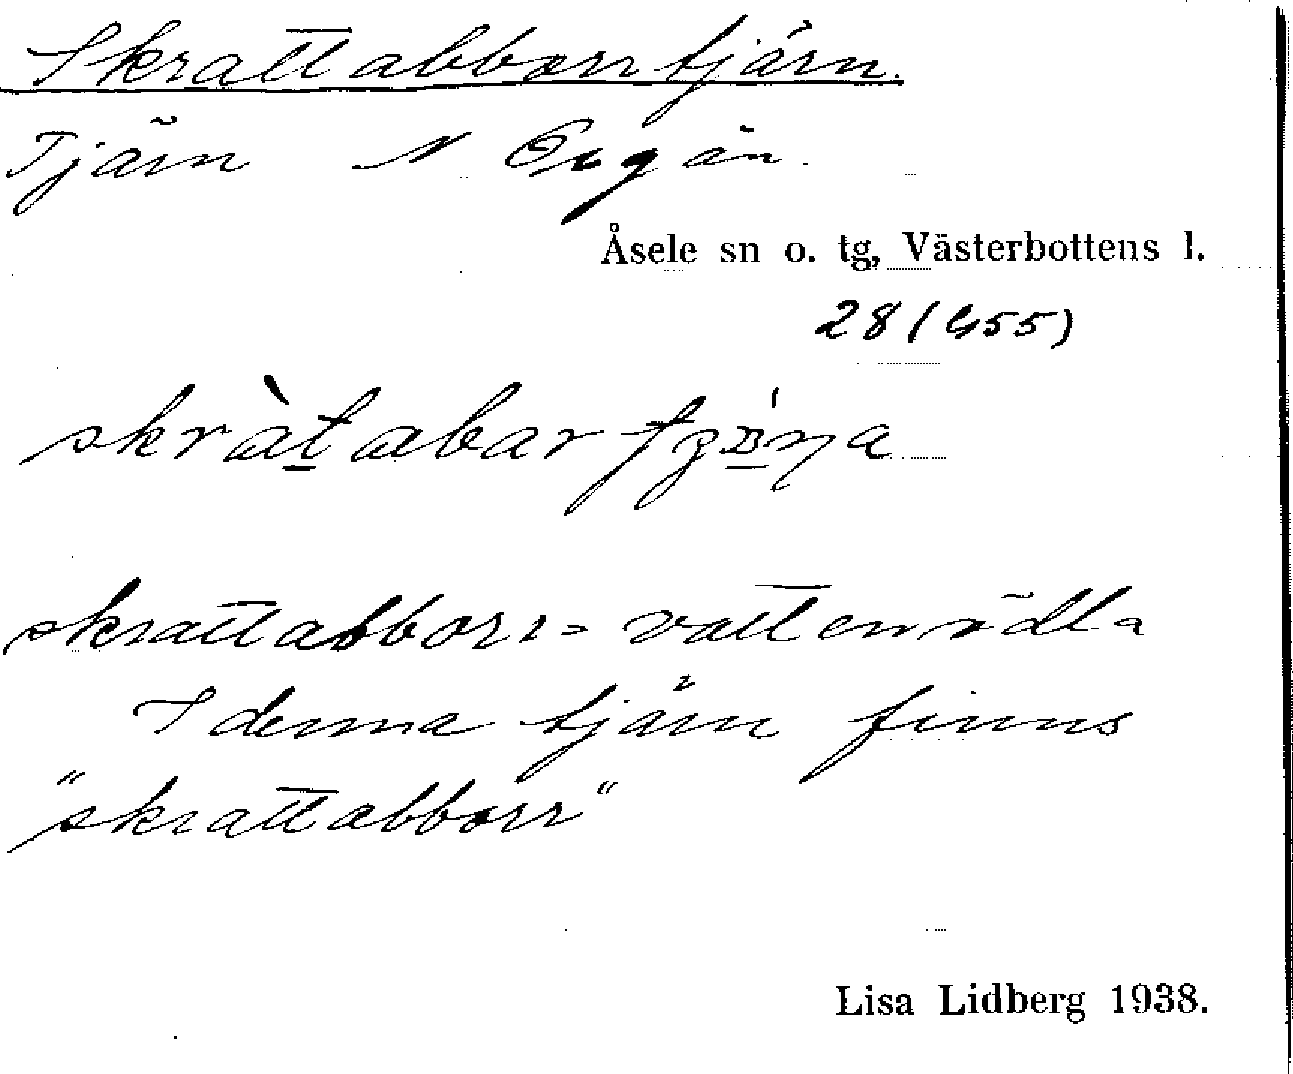 Skrattabborrtjärn.
Tjärn N Örgån.
Åsele sn o. tg, Västerbottens l.
28 (455)
skrattabborr = vattenödla
I denna tjärn finns
"skrattabborr"
Lisa Lidberg 1938.